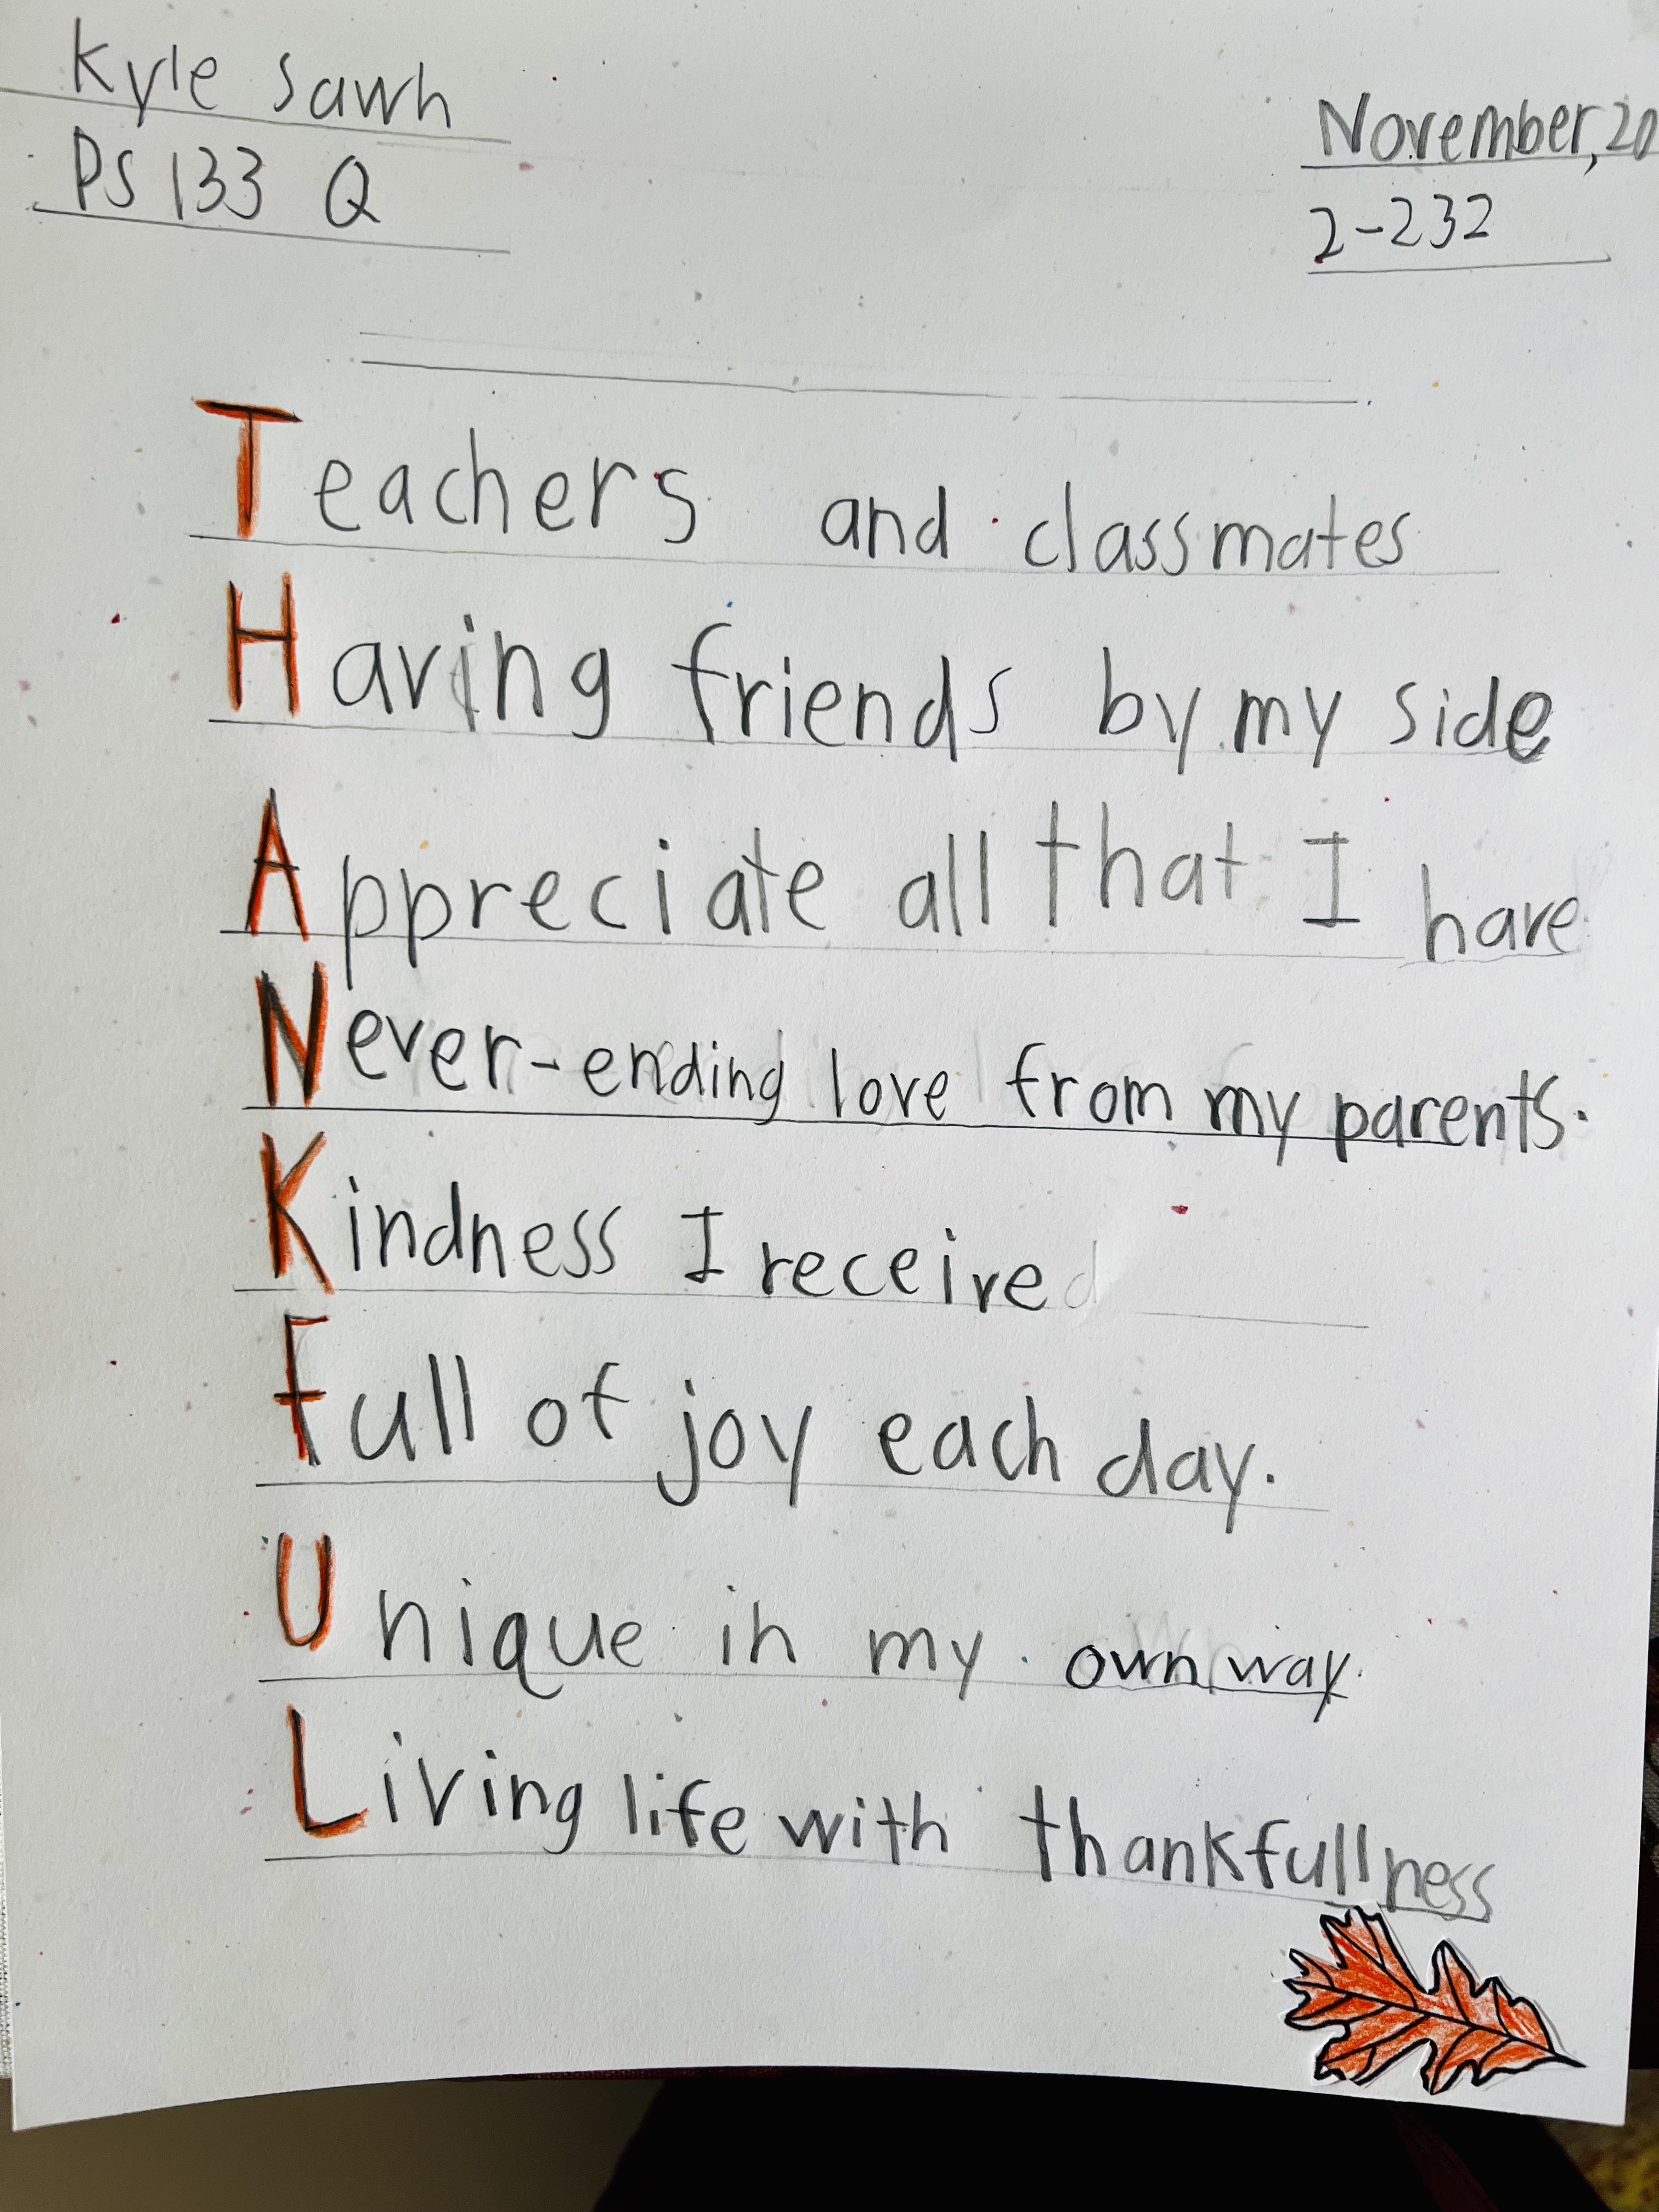 Kyle Sawh
November, 20
PS 133 Q
2-232
Teachers and classmates
Having friends by my side
Appreciate all that I have
Never-ending love from my parents.
Kindness I receive
Full of joy each day.
Unique in my own way.
Living life with thankfullness